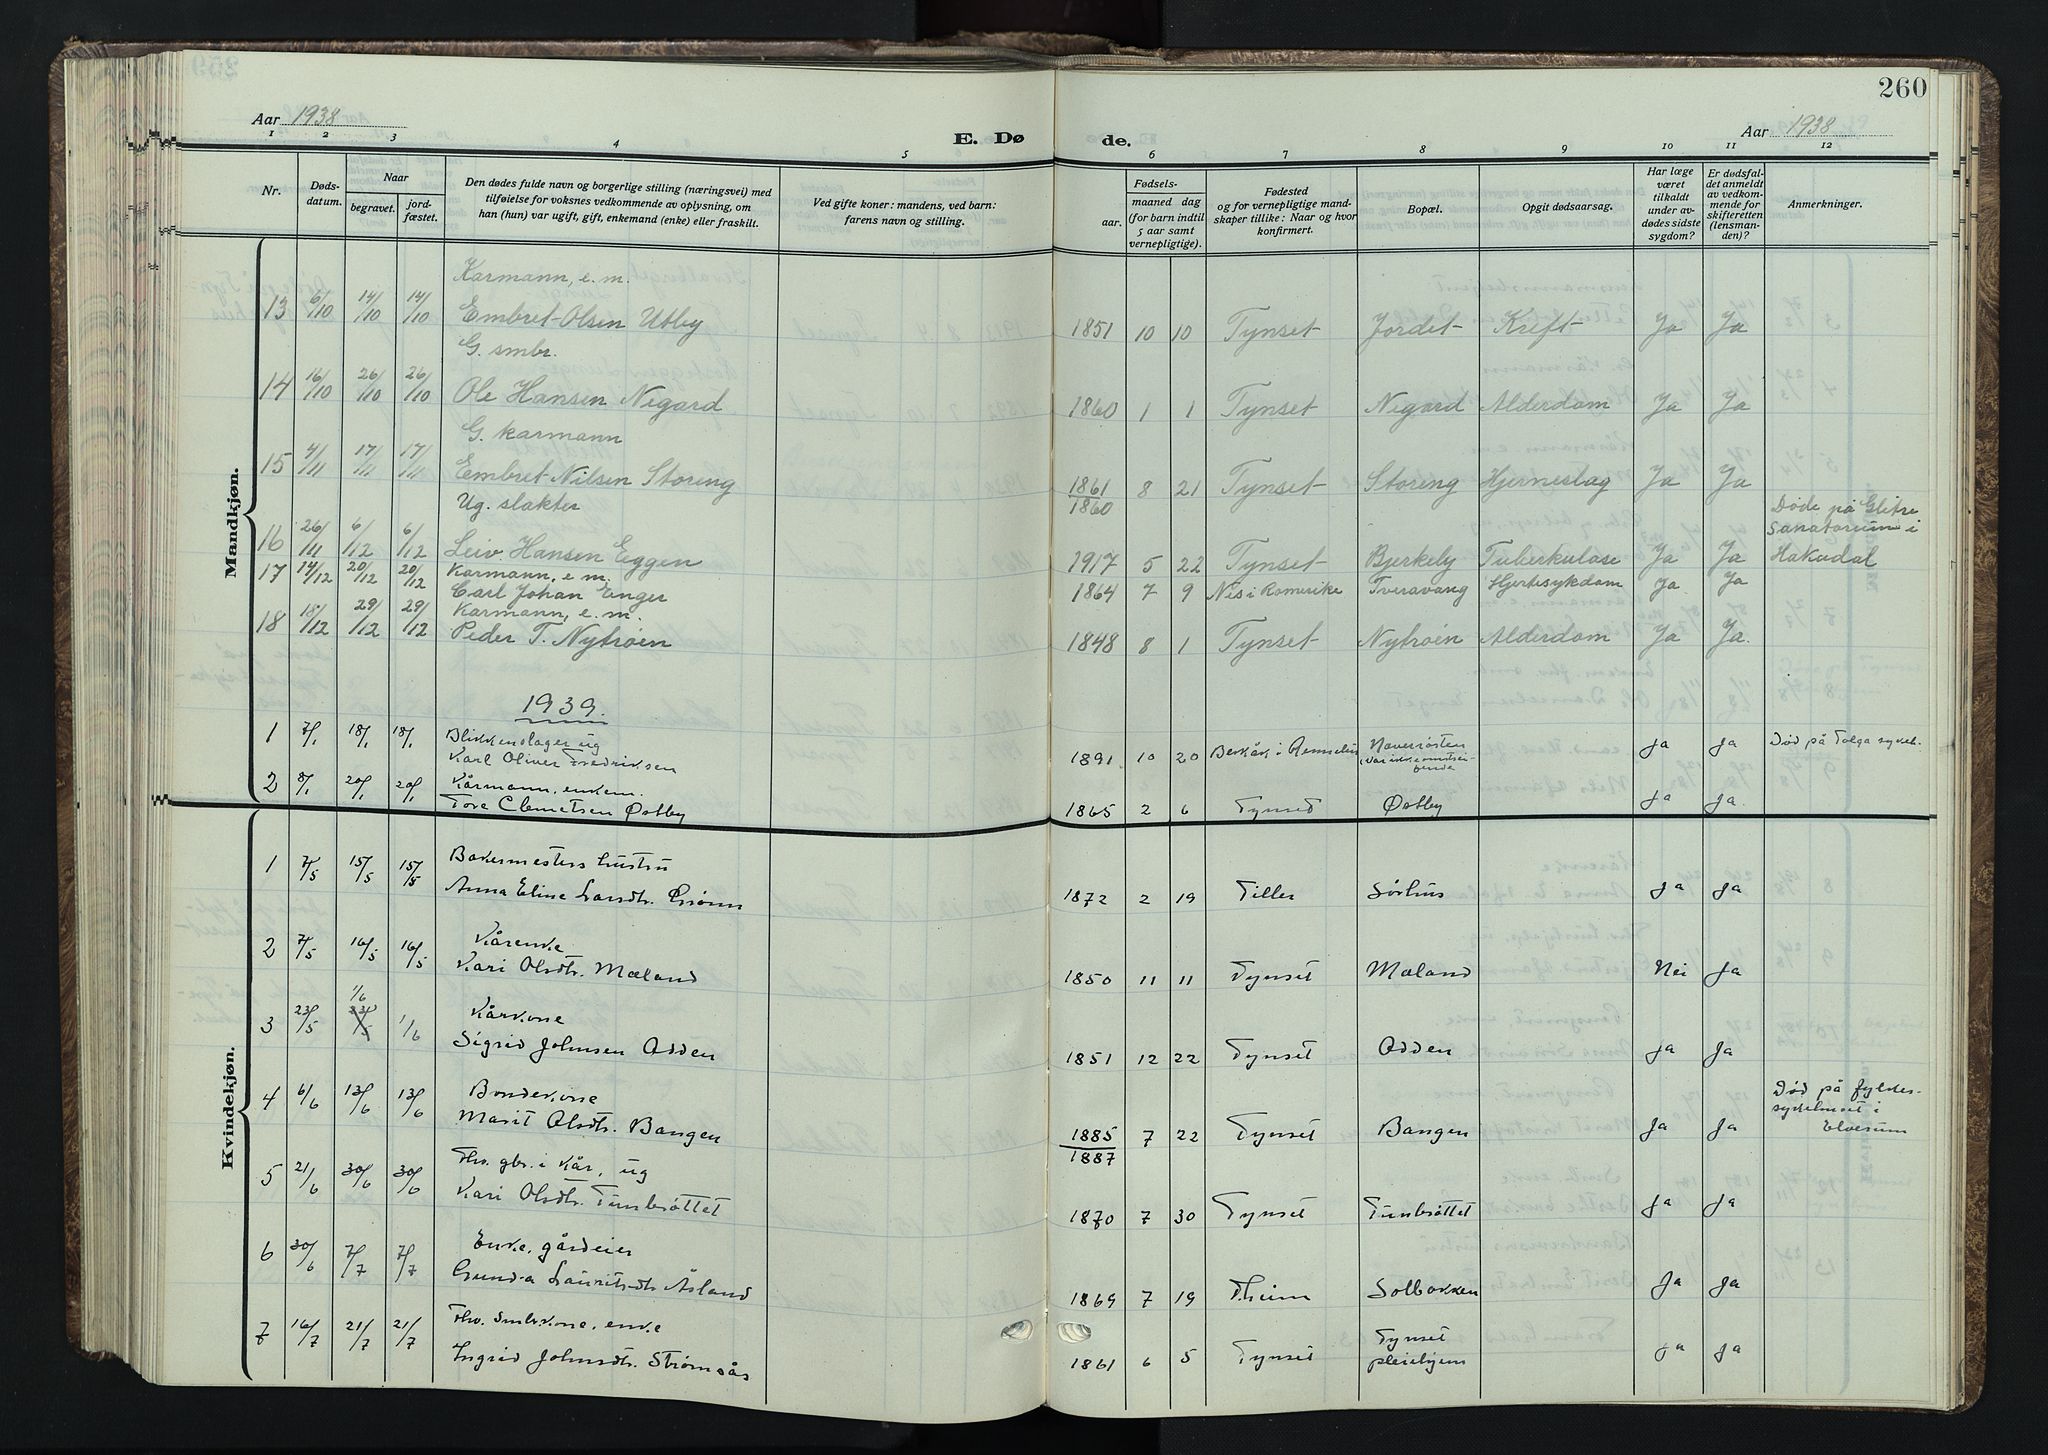 260
Aar 1938
E. Dø
de.
Aar 1938
1 2 3 4 5 6 7 8 9 10 11 12
Nr.
Døds-
datum.
Naar
begravet.
jord-
fæstet.
Den dødes fulde navn og borgerlige stilling (næringsvei) med
tilføielse for voksnes vedkommende av oplysning, om
han (hun) var ugift, gift, enkemand (enke) eller fraskilt.
Ved gifte koner: mandens, ved barn:
farens navn og stilling.
Fødsels-
aar. maaned dag
(for barn indtil
5 aar samt
vernepligtige).
Fødested
og for vernepligtige mand-
skaper tillike: Naar og hvor
konfirmert.
Bopæl.
Opgit dødsaarsag.
Har læge
været
tilkaldt
under av-
dødes sidste
sygdom?
Er dødsfal-
det anmeldt
av vedkom-
mende for
skifteretten
(lensman-
den)?
Anmerkninger.
Mandkjøn.
Karmann, e. m.
13 6/10 14/10 14/10 Embret Olsen Utby 1851 10 10 Tynset Jordet Kreft Ja Ja
G. smbr.
14 16/10 26/10 26/10 Ole Hansen Negard 1860 1 1 Tynset Negard Alderdom Ja Ja
G. karmann
15 4/11 17/11 17/11 Embret Nilsen Storeng 1861 8 21 Tynset Storeng Hjerneslag Ja Ja
1860
Ug. slakter
Døde på Glitre
Sanatorium i
16 26/11 6/12 6/12 Leiv Hansen Eggen 1917 5 22 Tynset Bjerkely Tuberkulose Ja Ja Hakadal
17 14/12 20/12 20/12 Karmann, e. m.
Carl Johan Enger 1864 7 9 Nes i Romerike Tveravang Hjertesykdom Ja Ja
Karmann, e. m.
18 18/12 29/12 29/12 Peder T. Nytrøen 1848 8 1 Tynset Nytrøen Alderdom Ja Ja.
1939.
1 7/1 18/1 18/1 Blikkenslager ug
Karl Oliver Fredriksen 1891 10 20 Berkåk i Ja Ja Død på Tolga sykeh.
2 8/1 20/1 20/1 Kårmann, enkem.
Tore Clemetsen Østby 1865 2 6 Tynset Østby Ja Ja.
Kvindekjøn.
1 7/5 15/5 15/5 Bakermesters hustru
Anna Eline Larsdtr. Grønn 1872 2 19 Tiller Sørhus Ja Ja
2 7/5 16/5 16/5 Kårenke
Kari Olsdtr. Mæland 1850 11 11 Tynset Mæland Nei Ja
1/6
3 23/5 23/5 1/6 Kårkone
Sigrid Johnsen Odden 1851 12 22 Tynset Odden Ja Ja
4 6/6 13/6 13/6 Bondekone
Død på fylkes-
sykehuset i
Elverum
Marit Olsdtr. Bangen 1885 7 22 Tynset Bangen Ja Ja
1887
5 21/6 30/6 30/6 Fhv. gbr. i kår, ug
Kari Olsdtr. Tunbråttet 1870 7 30 Tynset Tunbråttet Ja Ja
6 30/6 7/7 7/7 Enke, gårdeier
Gunda Lauritsdtr Åsland 1869 7 19 Theim Solbakken Ja Ja
7 16/7 21/7 21/7 Fhv. smbr.kone, enke
Ingrid Johnsdtr. Strømsås 1861 6 5 Tynset Tynset
pleiehjem Ja Ja